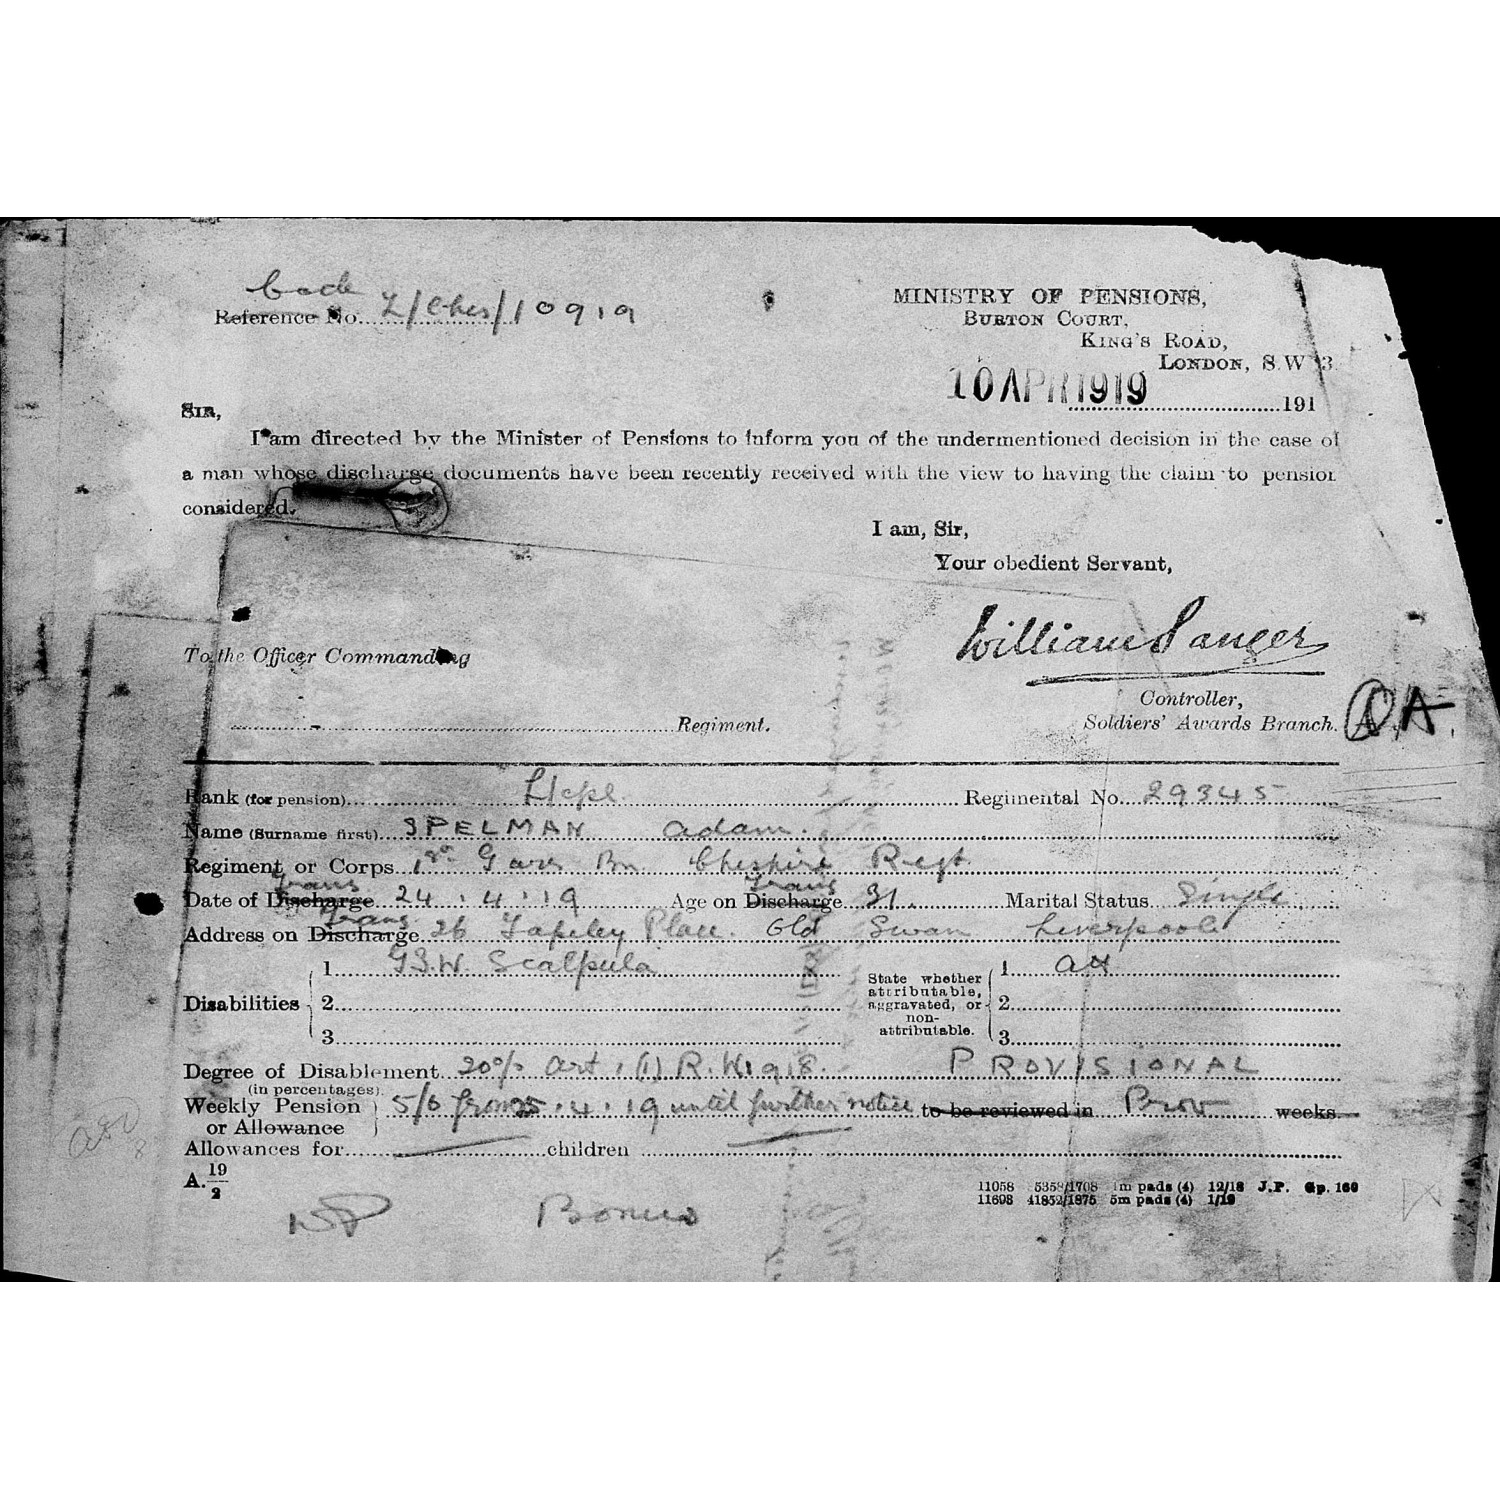 Code
Reference No. Z/Ches/10919
MINISTRY OF PENSIONS,
BURTON COURT,
KING'S ROAD,
LONDON, S.W 3.
10 APR 1919
191
SIR,
I am directed by the Minister of Pensions to inform you of the undermentioned decision in the case of
a man whose discharge documents have been recently received with the view to having the claim to pension
considered.
I am, Sir,
Your obedient Servant,
William Sanger
To the Officer Commanding
Controller,
Regiment.
Soldiers' Awards Branch.
A.
Rank (for pension) L/cpl Regimental No. 29345
Name (Surname first) SPELMAN Adam.
Regiment or Corps 1st Garr Bn Cheshire Regt.
Trans Trans
Date of Discharge 24.4.19 Age on Discharge 31. Marital Status Single
Trans
Address on Discharge 26 Tapeley Place. Old Swan Liverpool
Disabilities 1 G.S.W. Scalpula
State whether attributable, aggravated, or non-attributable. 1 Att
2 2
3 3
Degree of Disablement 20% Art. (1) R.W. 1918. PROVISIONAL
(in percentages)
Weekly Pension or Allowance 5/6 from 25.4.19 until further notice to be reviewed in Prov weeks
Allowances for children
A. 19/2
11058 5358/1708 1m pads (4) 12/18 J.P. Gp. 160
11698 41852/1875 5m pads (4) 1/19
Bonus